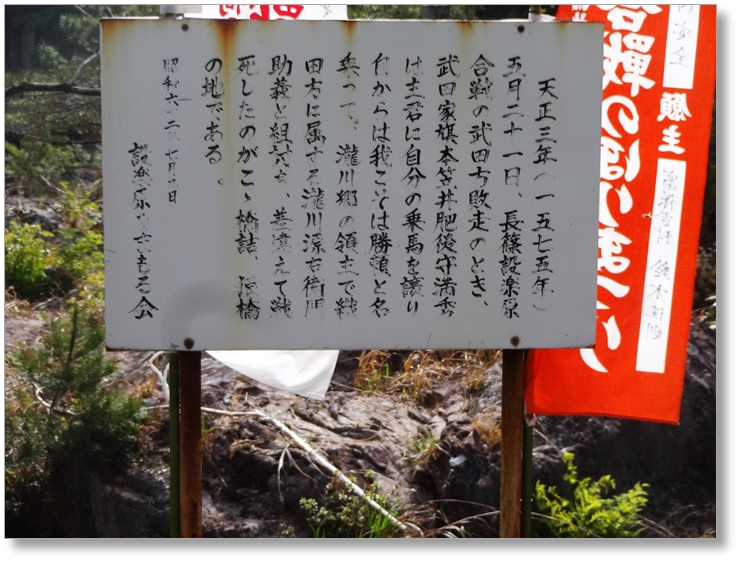 願主
合戦のぼりまつり
天正三年(一五七五年)
五月二十一日、長篠設楽原
合戦の武田方敗走のとき、
武田家旗本笠井肥後守満秀
は主君に自分の乗馬を譲り
自からは我こそは勝頼と名
乗って、瀧川郷の領主で織
田方に属する瀧川源右衛門
助義と組討ち、差違えて戦
死したのがここ橋詰、橋
の地である。
昭和六十二年 月 日
設楽原をまもる会